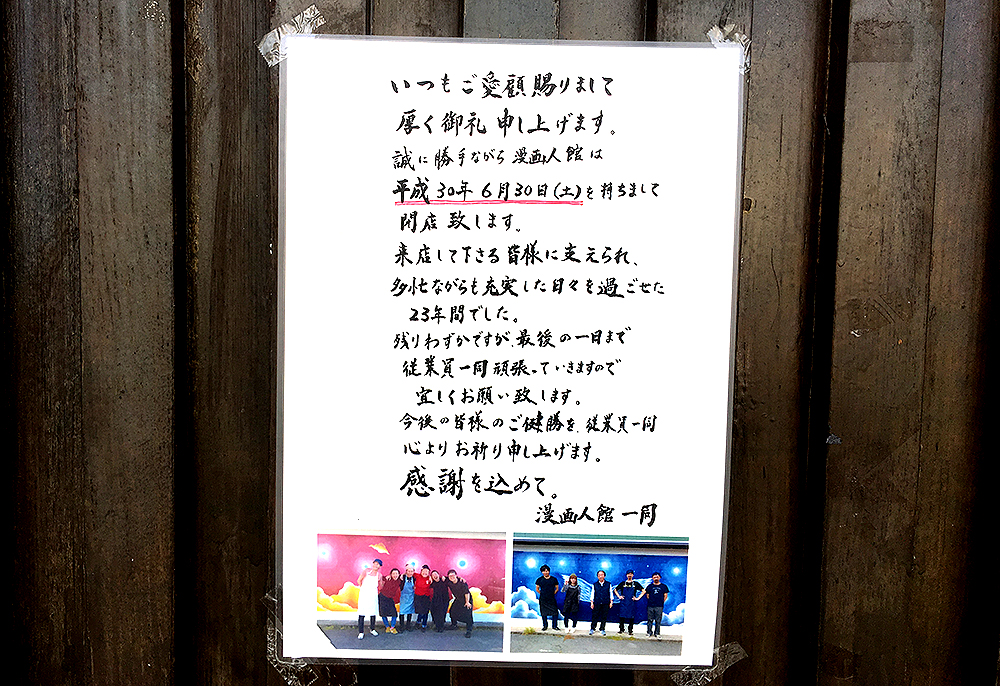 いつもご愛顧賜りまして
厚く御礼申し上げます。
誠に勝手ながら漫画人館は
平成30年6月30日(土)を持ちまして
閉店致します。
来店して下さる皆様に支えられ、
多忙ながらも充実した日々を過ごせた
23年間でした。
残りわずかですが、最後の一日まで
従業員一同頑張っていきますので
宜しくお願い致します。
今後の皆様のご健勝を、従業員一同
心よりお祈り申し上げます。
感謝を込めて。
漫画人館一同